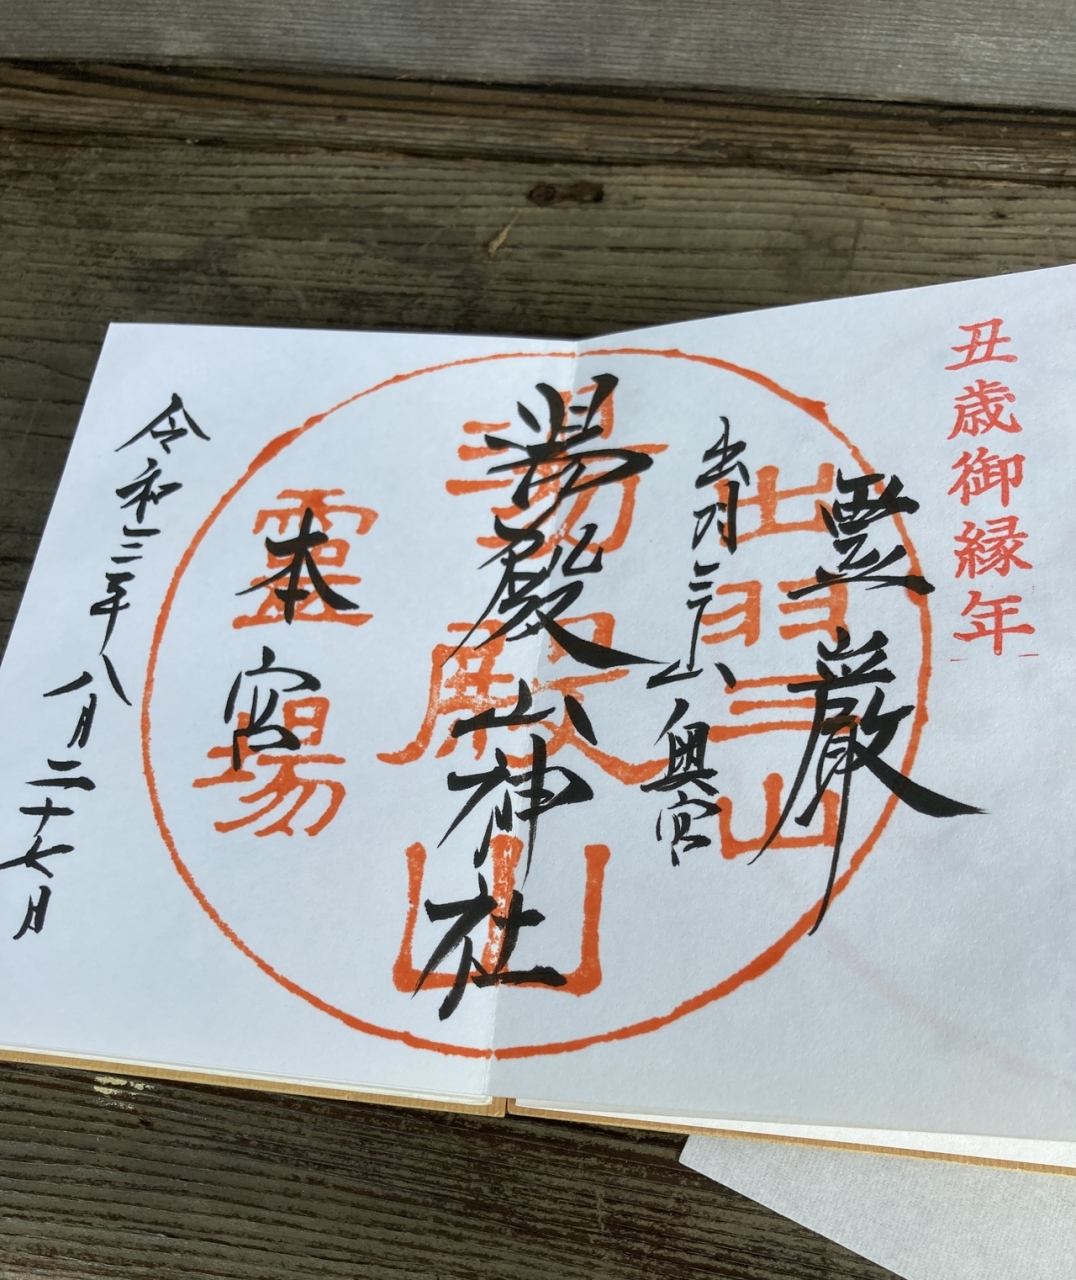 丑歳御縁年
霊巌
出羽三山
出羽三山奥宮
湯殿山神社
湯殿山
本宮
霊場
令和三年八月二十七日